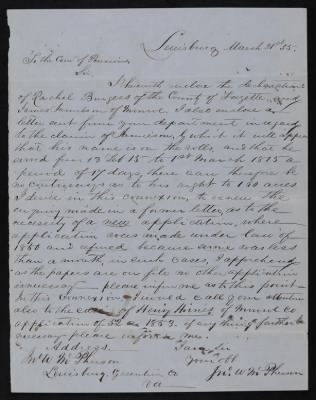 Lewisburg March 31st 55.
To the Com of Pensions
Sir,
I herewith enclose the declarations
of Rachel Burgess of the County of Fayette, and
James Jimison of Monroe I also enclose a
letter sent from your department in regard
to the claim of Jimison, by which it will appear
that his name is on the rolls, and that he
served from 13 Feb 15 to 1st March 1815 a
period of 17 days, there can therefore be
no controversy as to his right to 160 acres
I desire in this connexion, to renew the
enquiry made in a former letter, as to the
necessity of a new application, where
application was made under law of
1850 and refused because service was less
than a month, in such cases, I apprehend
as the papers are on file no other application
is necessary — please inform me as to this point—
In this connexion I would call your attention
also to the case of Henry Hines of Monroe Co
application of 1853. if any thing further is
necessary please inform me.
Address I am Sir
Jno W McPherson Your Obt
Lewisburg, Greenbrier Co Jno W McPherson
Va